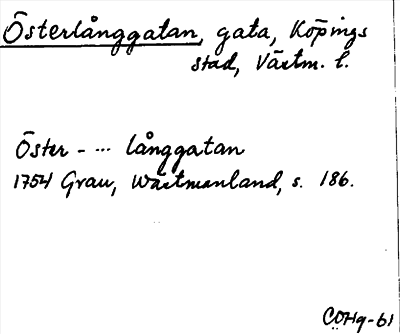 Österlånggatan, gata, Köpings
stad, Västm. l.
Öster - ... långgatan
1754 Grau, Wästmanland, s. 186.
CÖHg-61